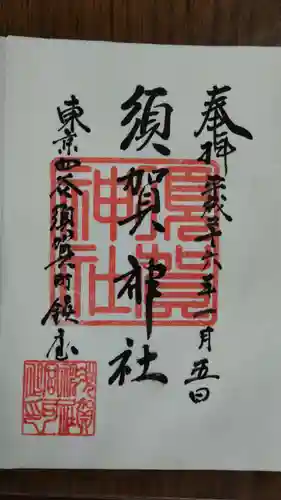 奉拝 平成二十六年一月五日
須賀神社
東京四谷須賀町鎮座
須賀神社